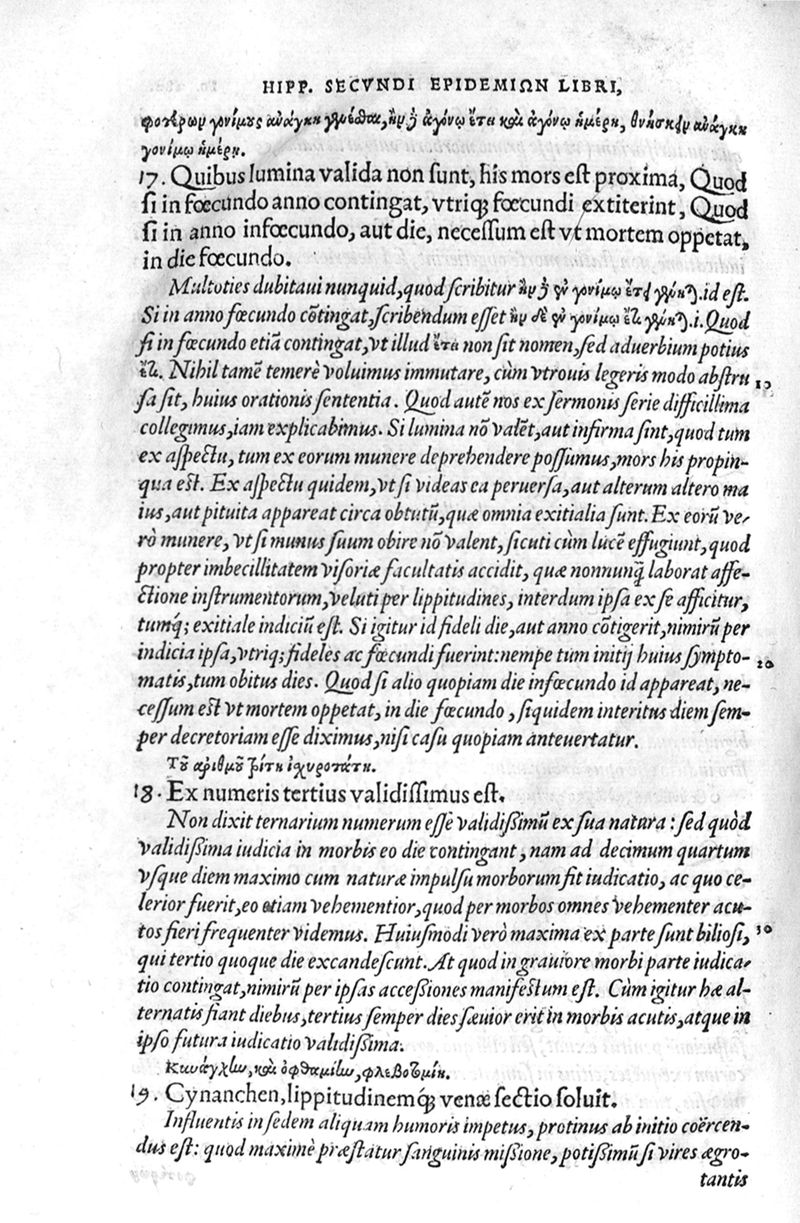 HIPP. SECVNDI EPIDEMIΩN LIBRI,
φοτέρων γονίμους ἀνάγκη γενέσθαι, ἢν δ ἀγόνῳ ἔτει καὶ ἀγόνῳ ἡμέρῃ, θνήσκειν ἀνάγκη
γονίμῳ ἡμέρῃ.
17. Quibus lumina valida non sunt, his mors est proxima, Quod
si in fœcundo anno contingat, vtriq; fœcundi extiterint, Quod
si in anno infœcundo, aut die, necessum est vt mortem oppetat,
in die fœcundo.
Multoties dubitaui nunquid, quod scribitur ἢν δ ἐν γονίμῳ ἔτει γένηται. id est.
Si in anno fœcundo cōtingat, scribendum esset ἢν δὲ ἐν γονίμῳ ἔτι γένηται .i. Quod
si in fœcundo etiā contingat, vt illud ἔτει non sit nomen, sed aduerbium potius
ἔτι. Nihil tamē temerè voluimus immutare, cùm vtrouis legeris modo abstru
sa sit, huius orationis sententia. Quod autē nos ex sermonis serie difficillima
collegimus, iam explicabimus. Si lumina nō valēt, aut infirma sint, quod tum
ex aspectu, tum ex eorum munere deprehendere possumus, mors his propin-
qua est. Ex aspectu quidem, vt si videas ea peruersa, aut alterum altero ma
ius, aut pituita appareat circa obtutū, quæ omnia exitialia sunt. Ex eorū ve-
rò munere, vt si munus suum obire nō valent, sicuti cùm lucē effugiunt, quod
propter imbecillitatem visoriæ facultatis accidit, quæ nonnunq̃ laborat affe-
ctione instrumentorum, veluti per lippitudines, interdum ipsa ex se afficitur,
tumq́; exitiale indiciū est. Si igitur id fideli die, aut anno cōtigerit, nimirū per
indicia ipsa, vtriq; fideles ac fœcundi fuerint: nempe tum initij huius sympto-
matis, tum obitus dies. Quod si alio quopiam die infœcundo id appareat, ne-
cessum est vt mortem oppetat, in die fœcundo, siquidem interitus diem sem-
per decretoriam esse diximus, nisi casu quopiam anteuertatur.
Τοῦ ἀριθμοῦ τρίτη ἰσχυροτάτη.
18. Ex numeris tertius validissimus est.
Non dixit ternarium numerum esse validissimū ex sua natura: sed quòd
validissima iudicia in morbis eo die contingant, nam ad decimum quartum
vsque diem maximo cum naturæ impulsu morborum fit iudicatio, ac quo ce-
lerior fuerit, eo etiam vehementior, quod per morbos omnes vehementer acu-
tos fieri frequenter videmus. Huiusmodi verò maxima ex parte sunt biliosi,
qui tertio quoque die excandescunt. At quod in grauiore morbi parte iudica-
tio contingat, nimirū per ipsas accessiones manifestum est. Cùm igitur hæ al-
ternatis fiant diebus, tertius semper dies sæuior erit in morbis acutis, atque in
ipso futura iudicatio validissima.
Κυνάγχην, καὶ ὀφθαλμίην, φλεβοτομίη.
19. Cynanchen, lippitudinemq́; venæ sectio soluit.
Influentis in sedem aliquam humoris impetus, protinus ab initio coërcen-
dus est: quod maximè præstatur sanguinis missione, potissimū si vires ægro-
tantis
10
20
30